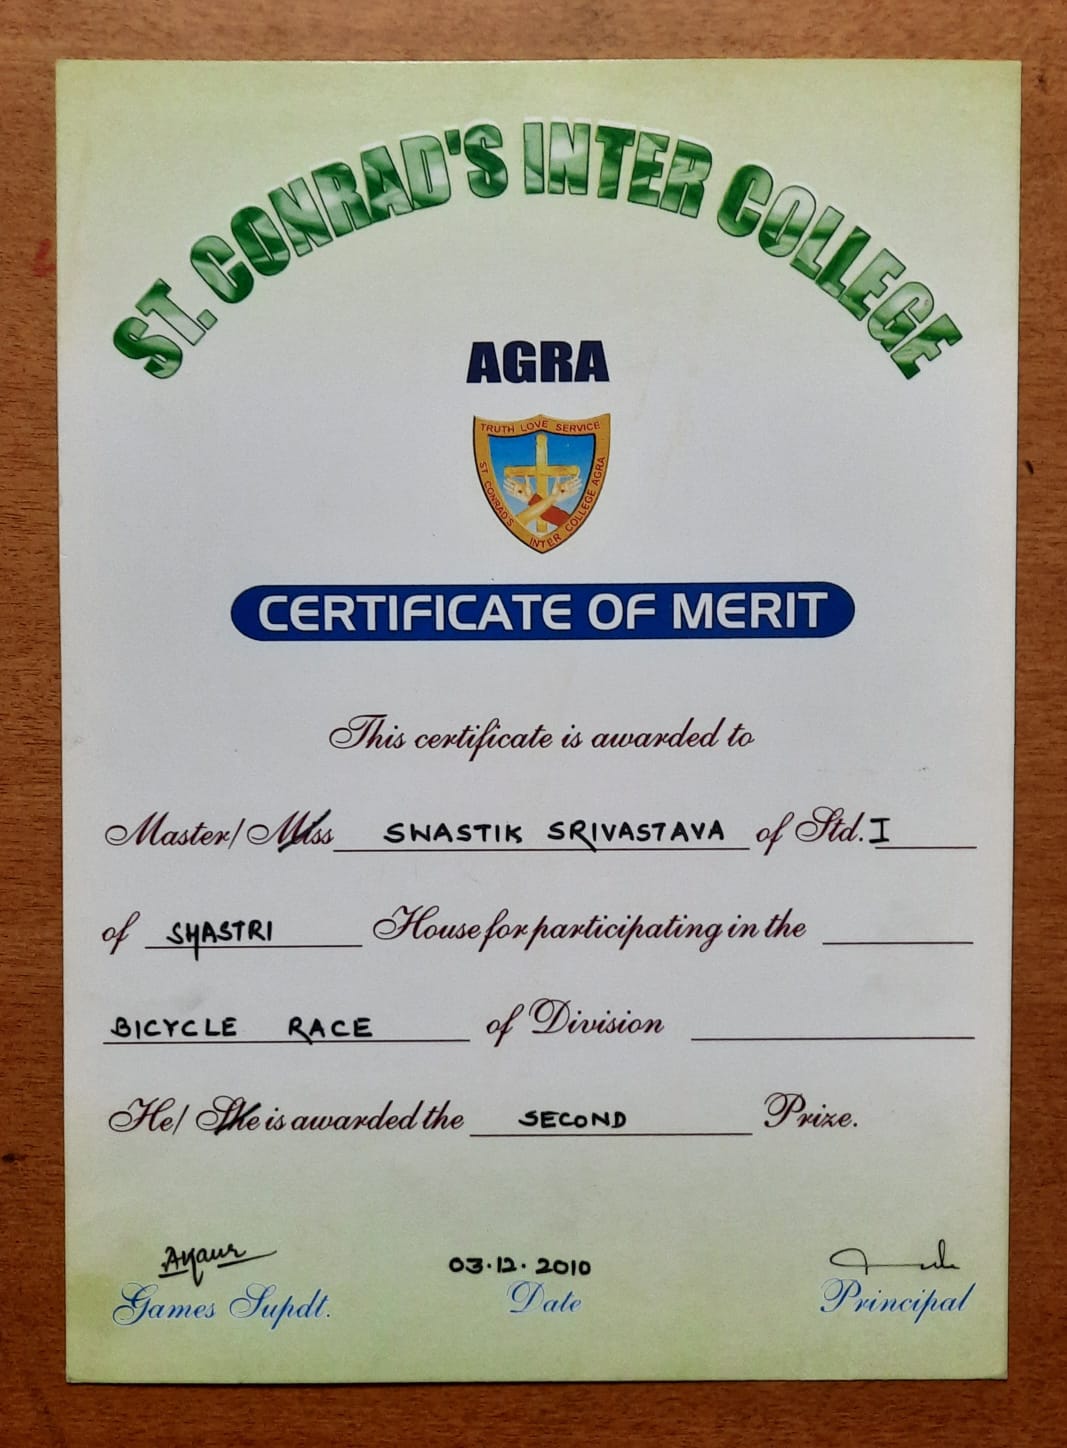 ST. CONRAD'S INTER COLLEGE
AGRA
TRUTH LOVE SERVICE
ST CONRAD'S INTER COLLEGE AGRA
CERTIFICATE OF MERIT
This certificate is awarded to
Master/ Miss SWASTIK SRIVASTAVA of Std. I
of SHASTRI House for participating in the
BICYCLE RACE of Division
He/ She is awarded the SECOND Prize.
03.12.2010
Games Supdt. Date Principal